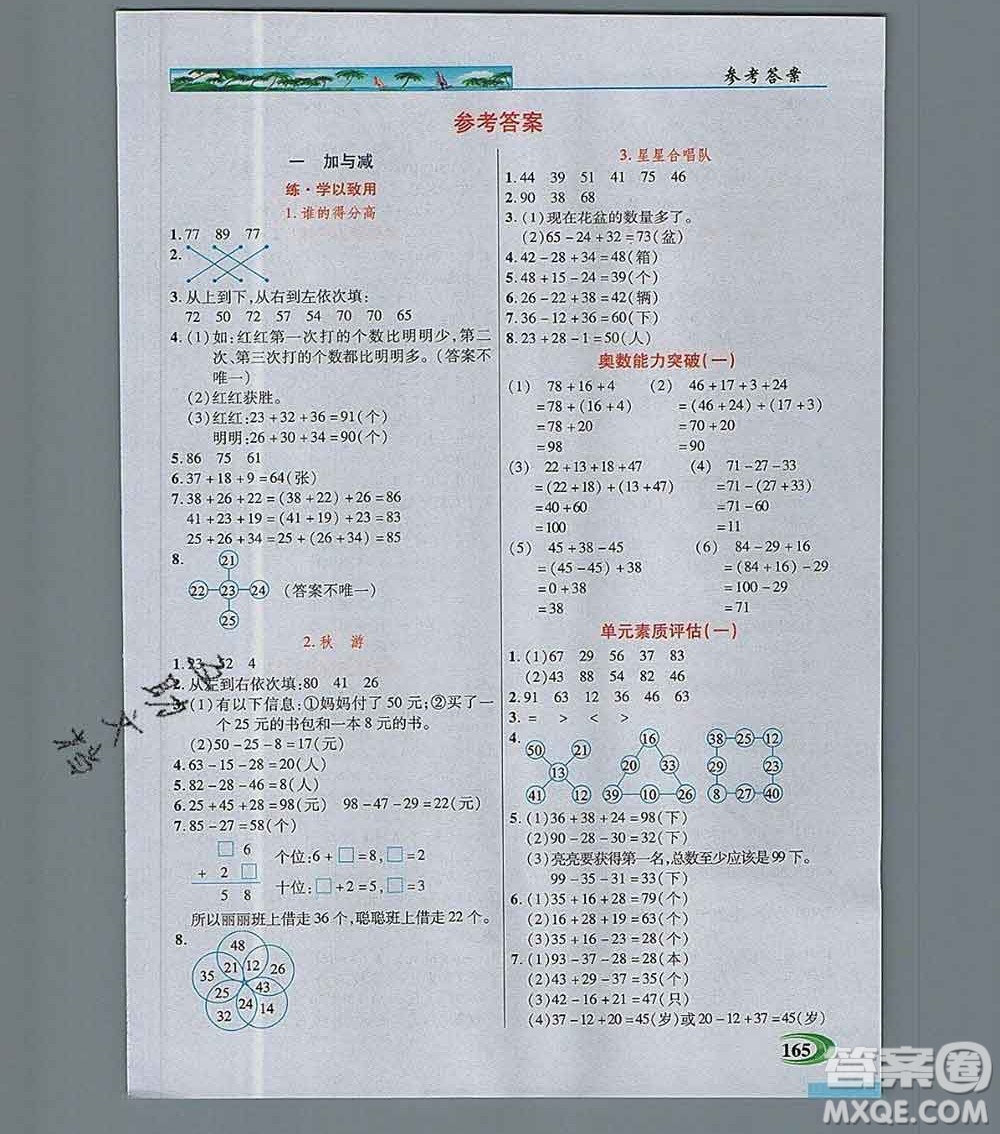 参考答案
参考答案
一 加与减
练·学以致用
1.谁的得分高
1.77 89 77
2.
3.从上到下,从右到左依次填:
72 50 72 57 54 70 70 65
4.(1)如:红红第一次打的个数比明明少,第二
次、第三次打的个数都比明明多。(答案不
唯一)
(2)红红获胜。
(3)红红:23+32+36=91(个)
明明:26+30+34=90(个)
5.86 75 61
6.37+18+9=64(张)
7.38+26+22=(38+22)+26=86
41+23+19=(41+19)+23=83
25+26+34=25+(26+34)=85
8.
21
22 23 24 (答案不唯一)
25
2.秋 游
1.23 52 4
2.从左到右依次填:80 41 26
(1)有以下信息:①妈妈付了50元;②买了一
个25元的书包和一本8元的书。
(2)50-25-8=17(元)
4.63-15-28=20(人)
5.82-28-46=8(人)
6.25+45+28=98(元) 98-47-29=22(元)
7.85-27=58(个)
□ 6
+ 2 □
5 8
个位:6+□=8,□=2
十位:□+2=5,□=3
所以丽丽班上借走36个,聪聪班上借走22个。
8.
48
35 21 12 26
25 43
32 24 14
3.星星合唱队
1.44 39 51 41 75 46
2.90 38 68
3.(1)现在花盆的数量多了。
(2)65-24+32=73(盆)
4.42-28+34=48(箱)
5.48+15-24=39(个)
6.26-22+38=42(辆)
7.36-12+36=60(下)
8.23+28-1=50(人)
奥数能力突破(一)
(1) 78+16+4 (2) 46+17+3+24
=78+(16+4) =(46+24)+(17+3)
=78+20 =70+20
=98 =90
(3) 22+13+18+47 (4) 71-27-33
=(22+18)+(13+47) =71-(27+33)
=40+60 =71-60
=100 =11
(5) 45+38-45 (6) 84-29+16
=(45-45)+38 =(84+16)-29
=0+38 =100-29
=38 =71
单元素质评估(一)
1.(1)67 29 56 37 83
(2)43 88 54 54
2.91 63 12 63
3.= > < >
4.
50 21
13
41 12
16
20 33
39 10 26
38 25 12
29 23
8 27 40
5.(1)36+38+24=98(下)
(2)90-28-30=32(下)
(3)亮亮要获得第一名,总数至少应该是99下。
99-35-31=33(下)
6.(1)35+16+28=79(个)
(2)35+16-31=20(个)
(3)35+16-23=28(个)
7.(1)93-37-28=28(本)
(2)43+29-37=35(个)
(3)42-21+43=64(只)
(4)37-12+20=45(岁)或20-12+37=45(岁)
165
答案圈
MXQE.COM